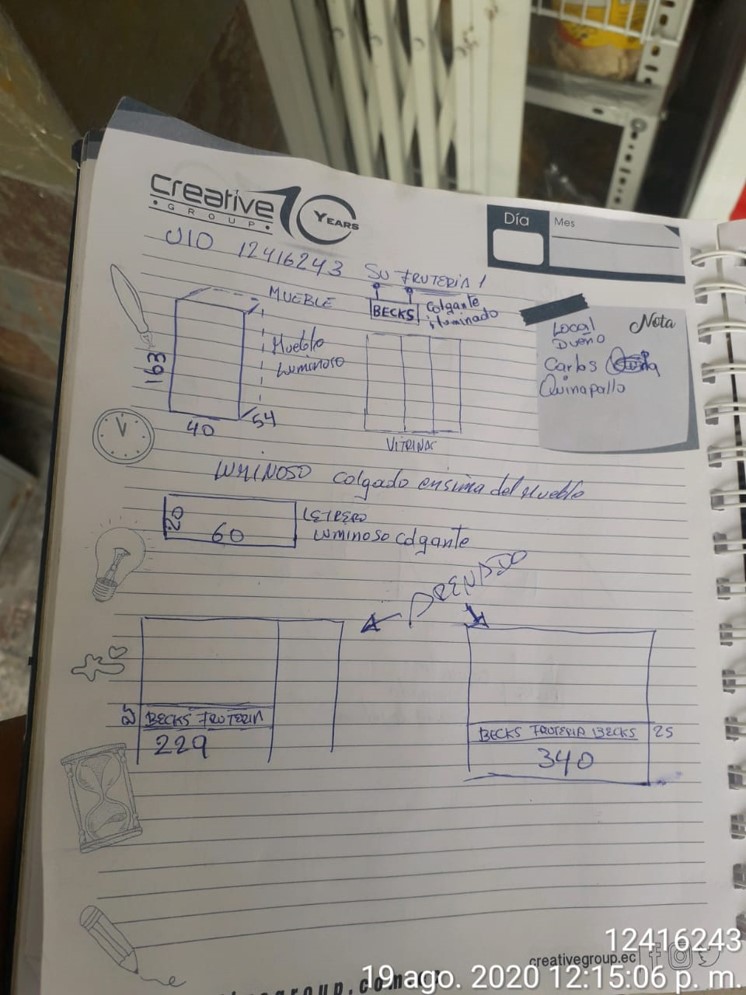 creative
GROUP
10
YEARS
Día
Mes
UIO 12416243
SU FRUTERIA 1
MUEBLE
BECKS
Colgante
iluminado
Mueble
Luminoso
163
40
54
VITRINAS
Nota
Local
Dueño
Carlos
Quinapallo
LUMINOSO colgado ensima del Mueble
20
60
LETRERO
Luminoso colgante
ARENADO
25
BECKS FRUTERIA
229
BECKS FRUTERIA BECKS
25
340
12416243
creativegroup.ec
19 ago. 2020 12:15:06 p. m.